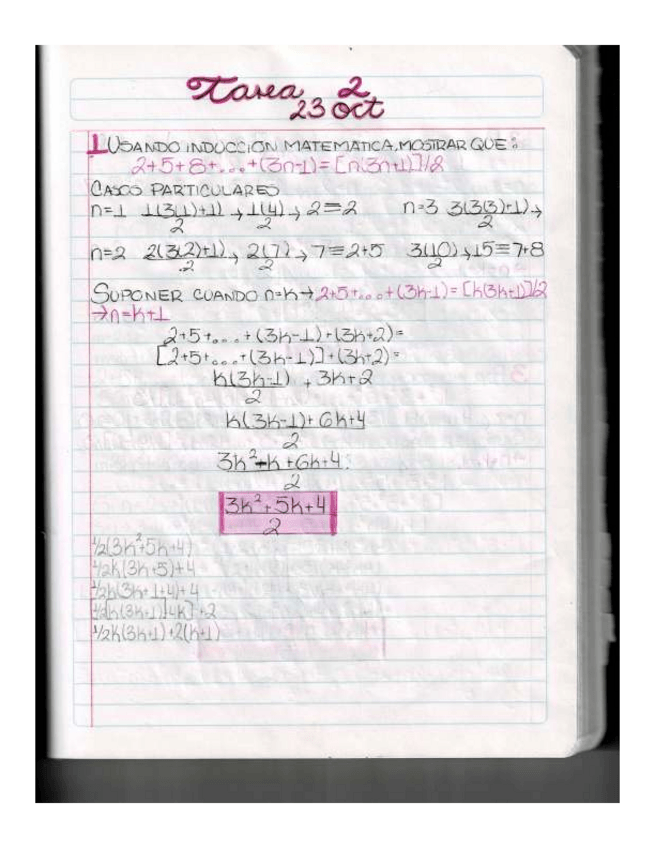 Tarea 2
23 oct
1 USANDO INDUCCION MATEMATICA, MOSTRAR QUE:
2+5+8+...+(3n-1)=[n(3n+1)]/2
CASOS PARTICULARES
n=1 1(3(1)+1)/2 → 1(4)/2 → 2≡2 n=3 3(3(3)+1)/2 →
n=2 2(3(2)+1)/2 → 2(7)/2 → 7≡2+5 3(10)/2 → 15≡7+8
SUPONER CUANDO n=k → 2+5+...+(3k-1)=[k(3k+1)]/2
→n=k+1
2+5+...+(3k-1)+(3k+2)=
[2+5+...+(3k-1)]+(3k+2)=
k(3k-1)/2 + 3k+2
k(3k-1)+6k+4/2
3k²-k+6k+4/2
3k²+5k+4/2
1/2(3k²+5k+4)
1/2k(3k+5)+4
1/2k(3k+1+4)+4
[1/2[k(3k+1)]4k]+2
1/2k(3k+1)+2(k+1)